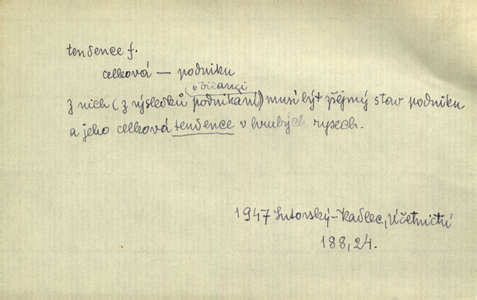 tendence f.
celková — podniku
o bilanci
z nich (z výsledků podnikání) musí být zřejmý stav podniku
a jeho celková tendence v hrubých rysech.
1947 Sutorský-Kadlec, Účetnictví
188,24.